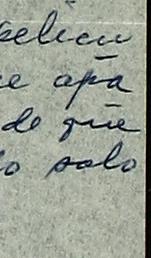 pelicu
e apa
de que
o solo